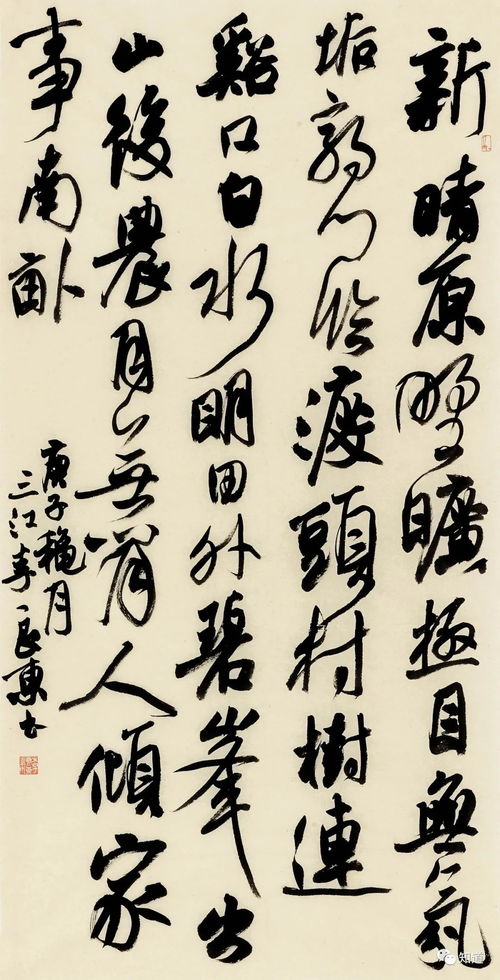 新晴原野曠極目無氛
垢郭门临渡頭村樹連
谿口白水明田外碧峯出
山後農月无閒人傾家
事南畝
庚子穐月
三江李良東书
知道